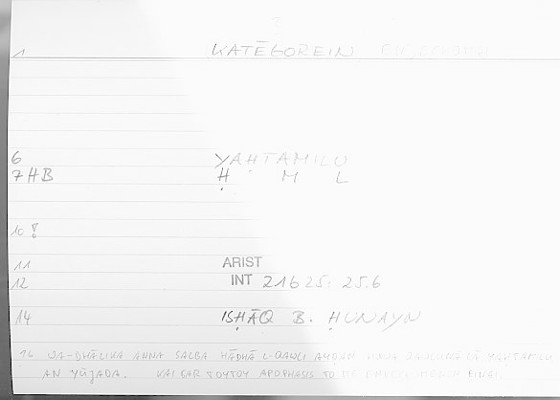 1 KATĒGOREIN
6 YAḤTAMILU
7HB Ḥ M L
10 !
11 ARIST
12 INT 21b25: 25.6
14 ISḤĀQ B. ḤUNAYN
16 WA-DHĀLIKA ANNA SALBA HĀDHĀ L-QAWLI AYḌAN YAḤTAMILU
AN YŪJADA. KAI GAR TOYTOY APOPHASIS TO EINAI.